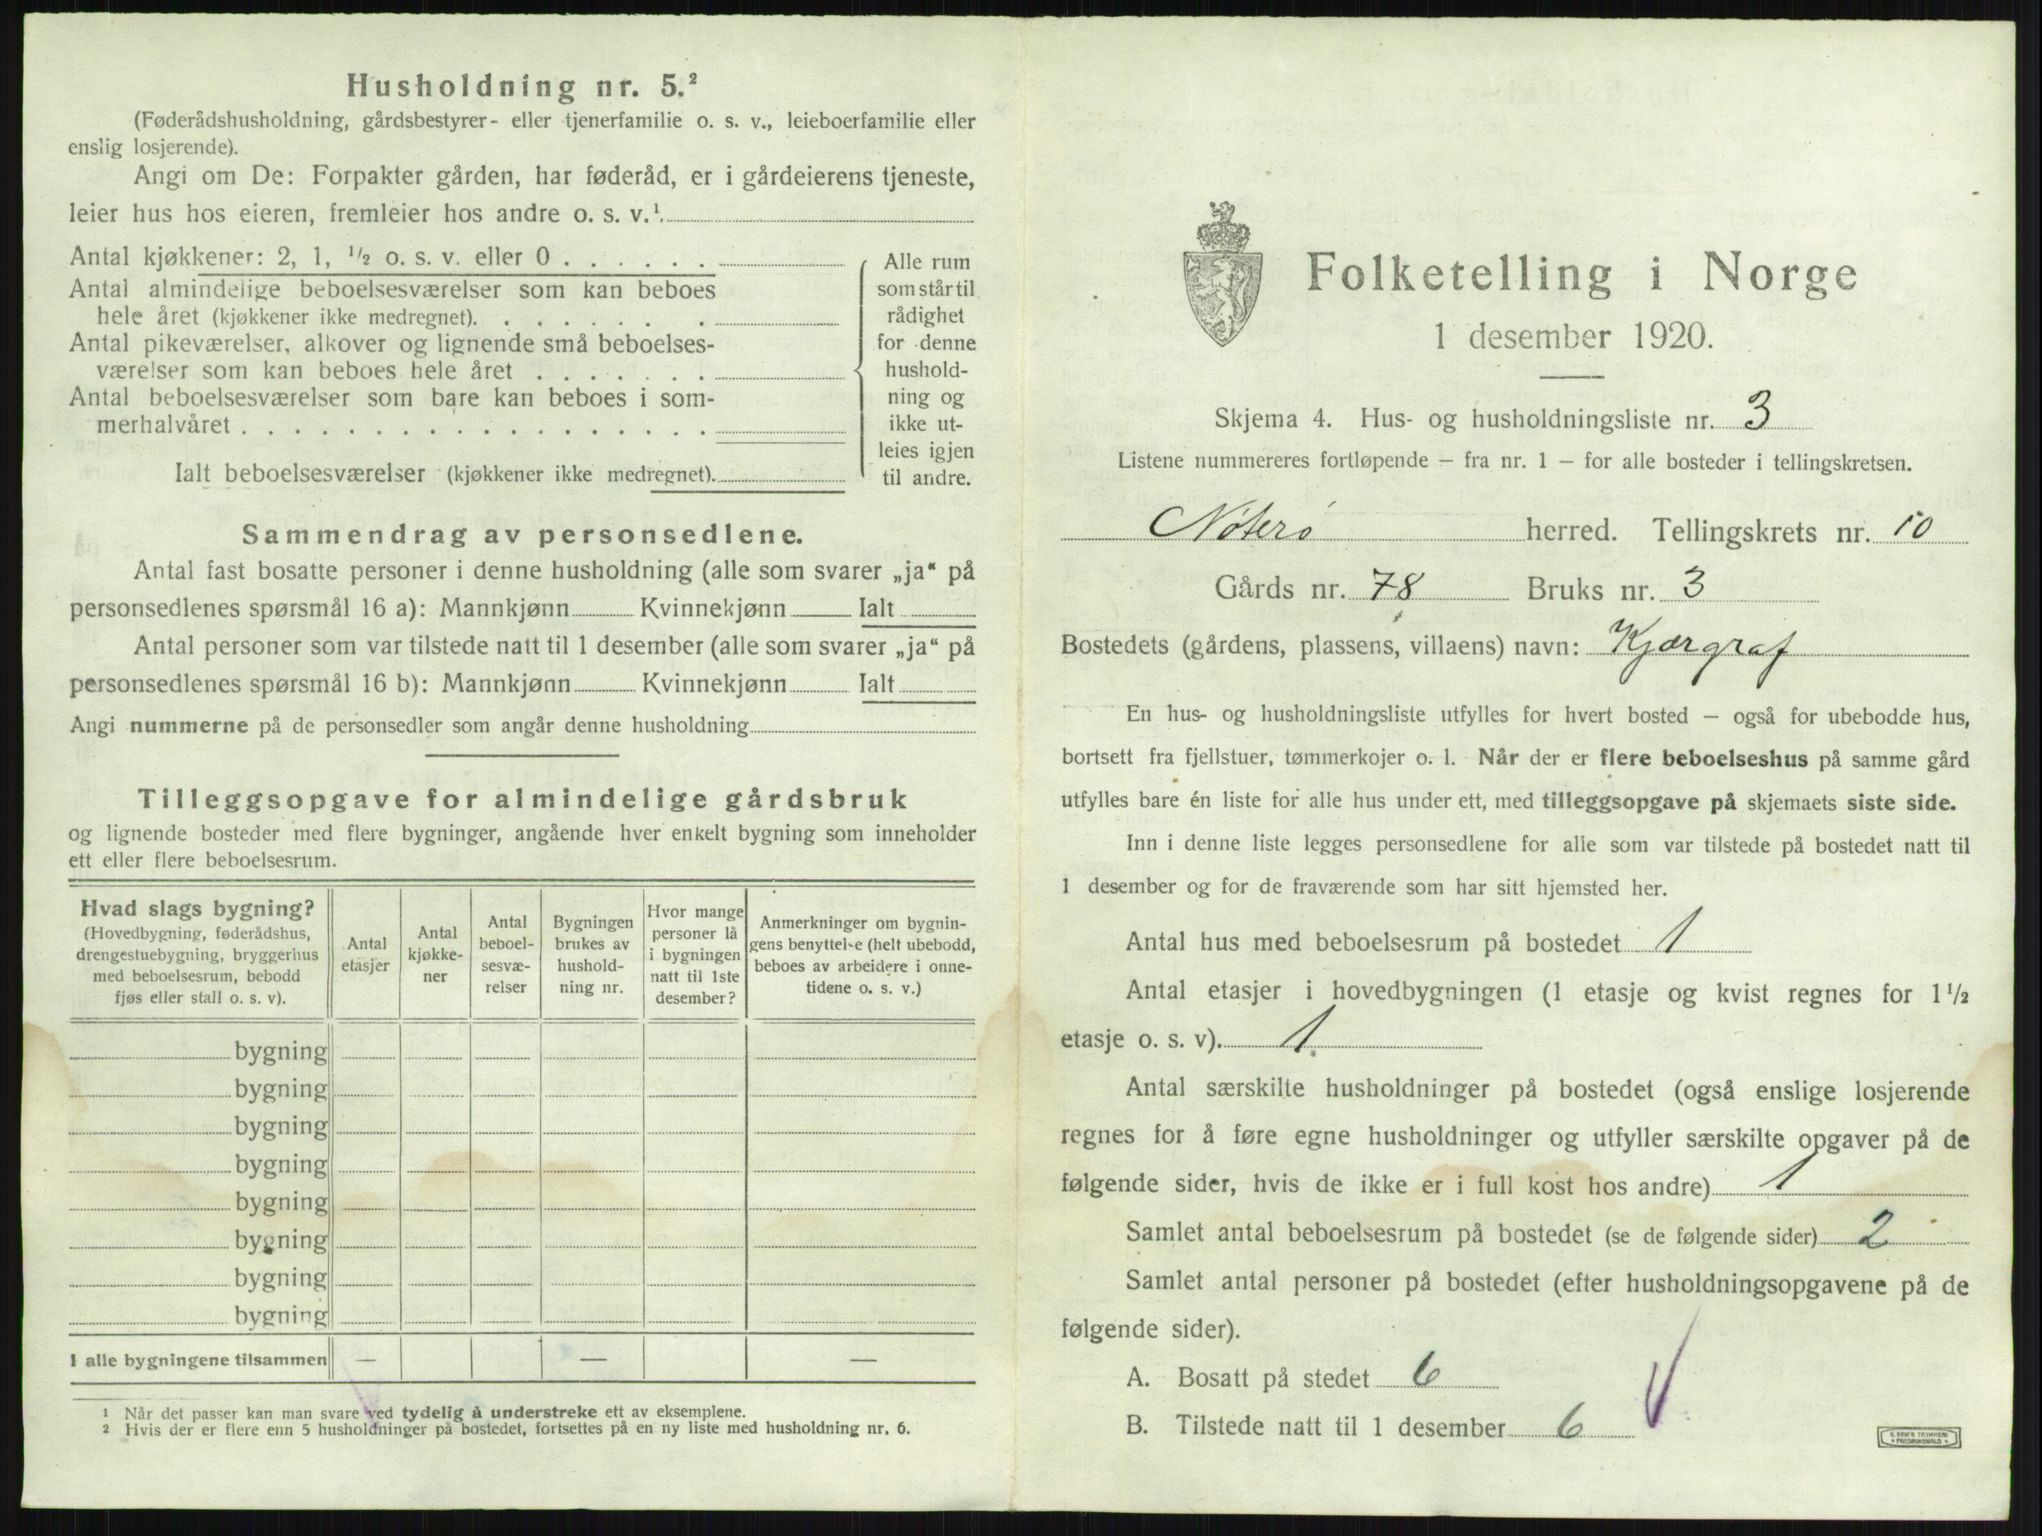 Husholdning nr. 5.²
(Føderådshusholdning, gårdsbestyrer- eller tjenerfamilie o. s. v., leieboerfamilie eller
enslig losjerende).
Angi om De: Forpakter gården, har føderåd, er i gårdeierens tjeneste,
leier hus hos eieren, fremleier hos andre o. s. v.¹
Antal kjøkkener: 2, 1, ¹/₂ o. s. v. eller 0 . . . . . .
Antal almindelige beboelsesværelser som kan beboes
hele året (kjøkkener ikke medregnet). . . . . . . .
Antal pikeværelser, alkover og lignende små beboelses-
værelser som kan beboes hele året . . . . . . .
Antal beboelsesværelser som bare kan beboes i som-
merhalvåret . . . . . . . . . . . . . . . . . .
Ialt beboelsesværelser (kjøkkener ikke medregnet).
Alle rum
som står til
rådighet
for denne
hushold-
ning og
ikke ut-
leies igjen
til andre.
Sammendrag av personsedlene.
Antal fast bosatte personer i denne husholdning (alle som svarer „ja“ på
personsedlenes spørsmål 16 a): Mannkjønn Kvinnekjønn Ialt
Antal personer som var tilstede natt til 1 desember (alle som svarer „ja“ på
personsedlenes spørsmål 16 b): Mannkjønn Kvinnekjønn Ialt
Angi nummerne på de personsedler som angår denne husholdning
Tilleggsopgave for almindelige gårdsbruk
og lignende bosteder med flere bygninger, angående hver enkelt bygning som inneholder
ett eller flere beboelsesrum.
Hvad slags bygning?
(Hovedbygning, føderådshus,
drengestuebygning, bryggerhus
med beboelsesrum, bebodd
fjøs eller stall o. s. v).
Antal
etasjer
Antal
kjøkke-
ner
Antal
beboel-
sesvæ-
relser
Bygningen
brukes av
hushold-
ning nr.
Hvor mange
personer lå
i bygningen
natt til 1ste
desember?
Anmerkninger om bygnin-
gens benyttelse (helt ubebodd,
beboes av arbeidere i onne-
tidene o. s. v.)
bygning
bygning
bygning
bygning
bygning
bygning
bygning
bygning
I alle bygningene tilsammen — — —
¹ Når det passer kan man svare ved tydelig å understreke ett av eksemplene.
² Hvis der er flere enn 5 husholdninger på bostedet, fortsettes på en ny liste med husholdning nr. 6.
Folketelling i Norge
1 desember 1920.
Skjema 4. Hus- og husholdningsliste nr. 3
Listene nummereres fortløpende – fra nr. 1 – for alle bosteder i tellingskretsen.
Nøterø herred. Tellingskrets nr. 10
Gårds nr. 78 Bruks nr. 3
Bostedets (gårdens, plassens, villaens) navn: Kjærgraf
En hus- og husholdningsliste utfylles for hvert bosted – også for ubebodde hus,
bortsett fra fjellstuer, tømmerkojer o. l. Når der er flere beboelseshus på samme gård
utfylles bare én liste for alle hus under ett, med tilleggsopgave på skjemaets siste side.
Inn i denne liste legges personsedlene for alle som var tilstede på bostedet natt til
1 desember og for de fraværende som har sitt hjemsted her.
Antal hus med beboelsesrum på bostedet 1
Antal etasjer i hovedbygningen (1 etasje og kvist regnes for 1¹/₂
etasje o. s. v). 1
Antal særskilte husholdninger på bostedet (også enslige losjerende
regnes for å føre egne husholdninger og utfyller særskilte opgaver på de
følgende sider, hvis de ikke er i full kost hos andre) 1
Samlet antal beboelsesrum på bostedet (se de følgende sider) 2
Samlet antal personer på bostedet (efter husholdningsopgavene på de
følgende sider).
A. Bosatt på stedet 6
B. Tilstede natt til 1 desember 6